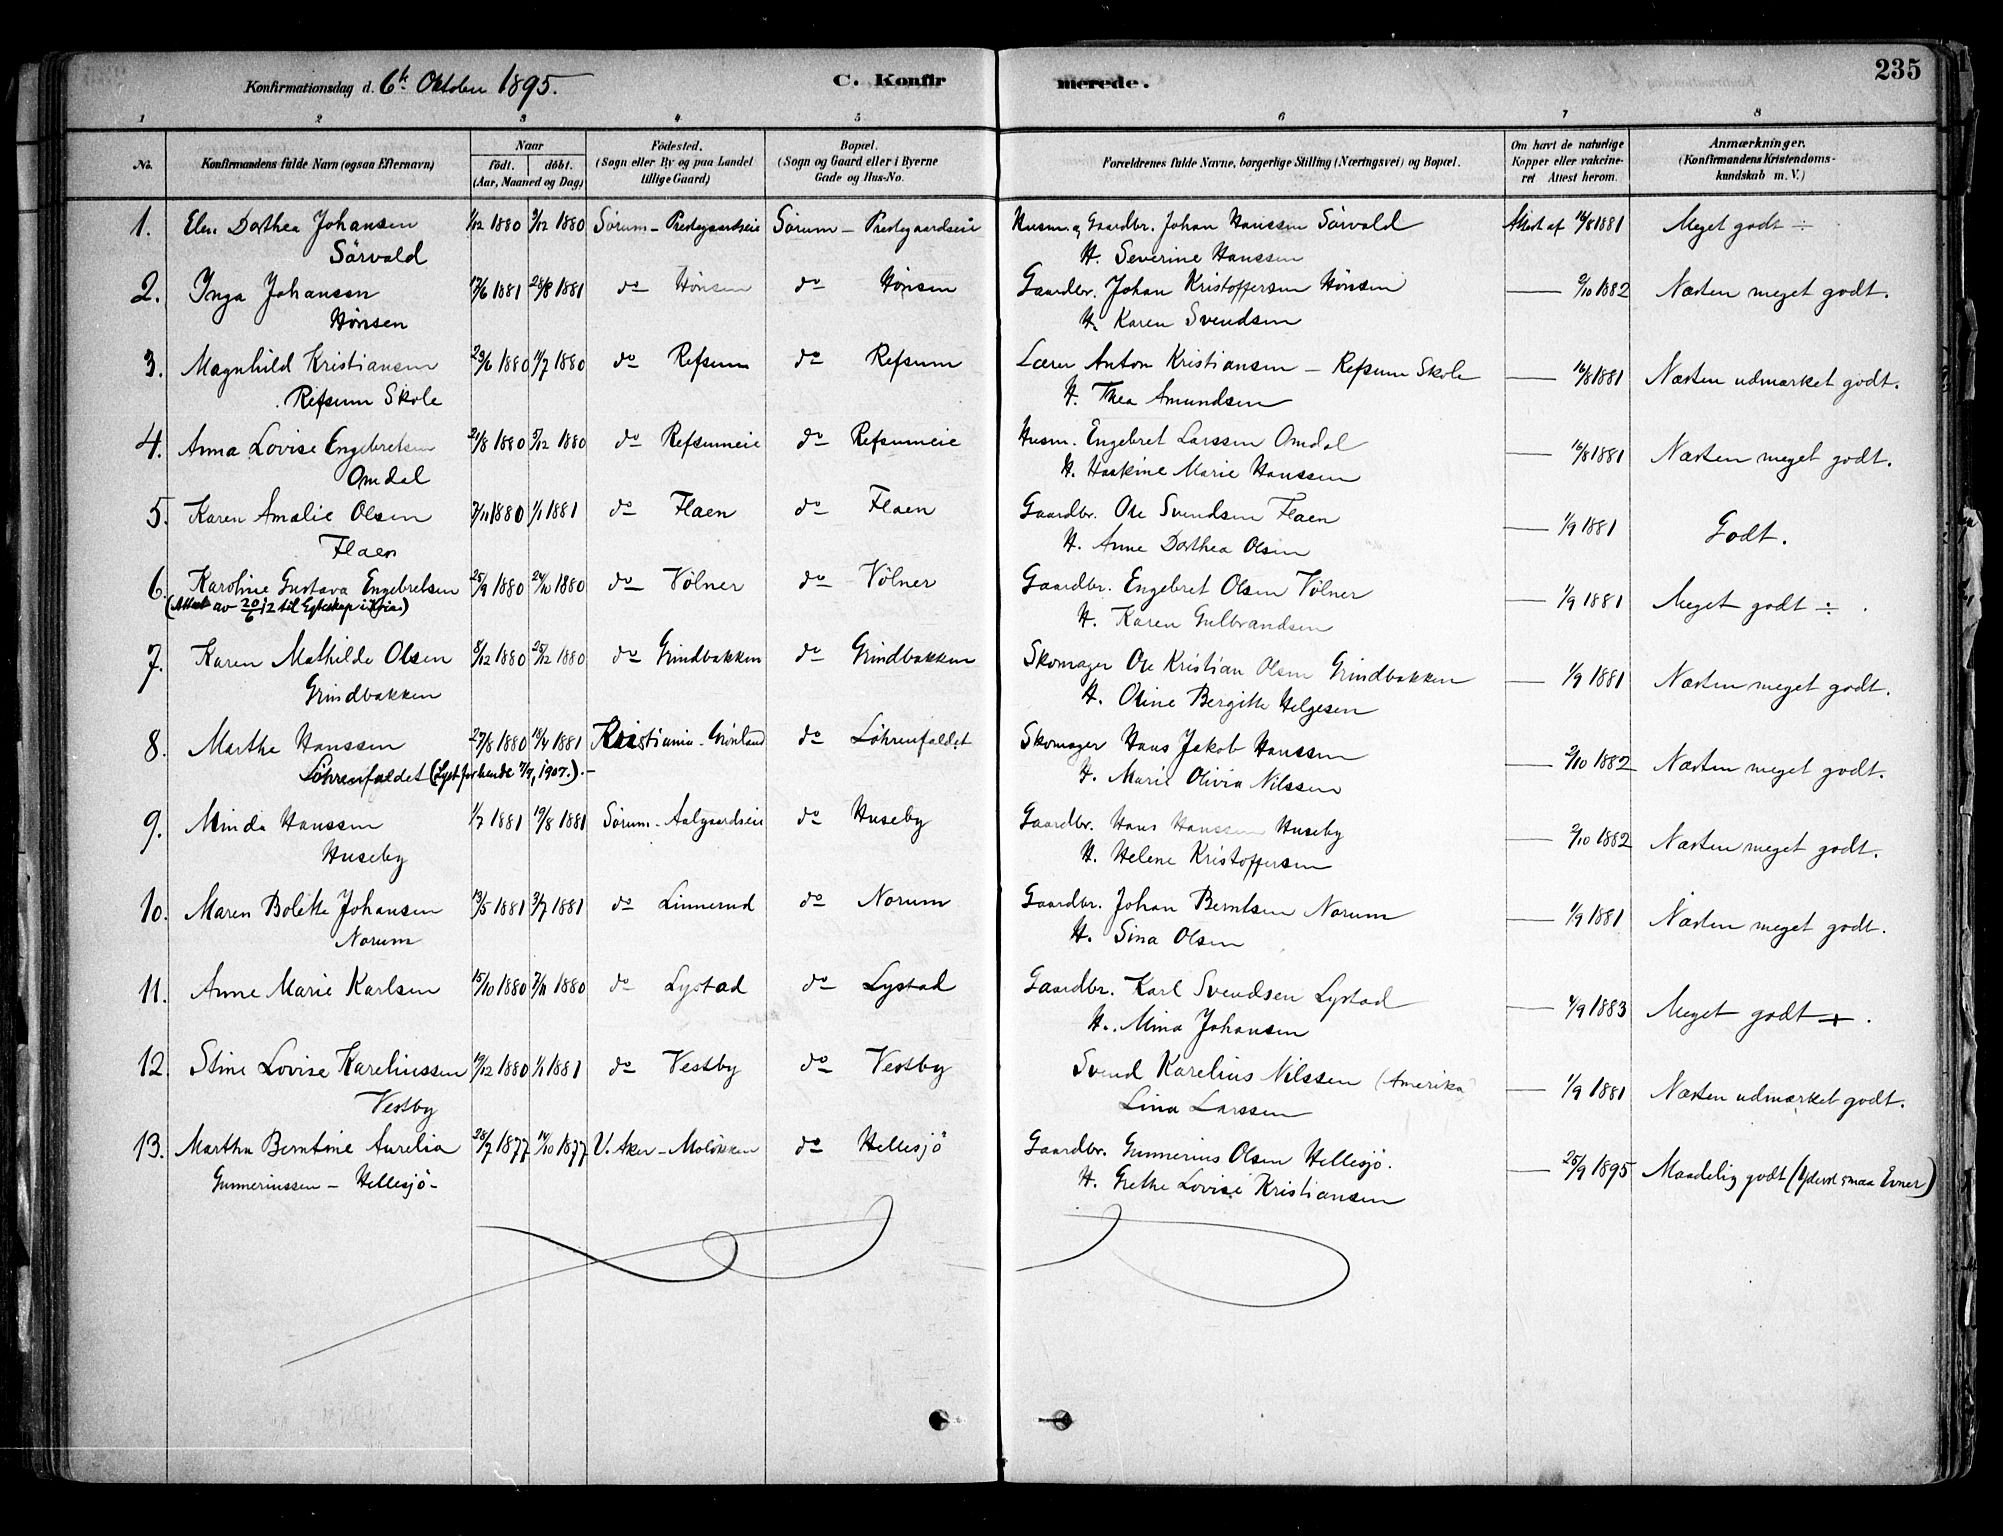 Konfirmationsdag d. 6te Oktober 1895.
C. Konfirmerede.
235
1 2 3 4 5 6 7 8
No.
Konfirmandens fulde Navn (ogsaa Efternavn)
Naar
født. døbt.
(Aar, Maaned og Dag)
Fødested.
(Sogn eller By og paa Landet
tillige Gaard)
Bopæl.
(Sogn og Gaard eller i Byerne
Gade og Hus-No.
Forældrenes fulde Navne, borgerlige Stilling (Næringsvei) og Bopæl.
Om havt de naturlige
Kopper eller vakcine-
ret Attest herom.
Anmærkninger.
(Konfirmandens Kristendoms-
kundskab m. V.)
1. Elen Dorthea Johansen 1/12 1880 9/12 1880 Sørum - Prestegaardseie Sørum - Prestegaardseie Husm. og Gaardbr. Johan Hanssen Sörvald Attest af 16/8 1881 Meget godt ÷
Sörvald H. Severine Hanssen
2. Inga Johansen 17/6 1881 28/8 1881 do Hønsen do Hønsen Gaardbr. Johan Kristoffersen Hønsen — 2/10 1882 Næsten meget godt.
Hønsen H. Karen Svendsen
3. Magnhild Kristiansen 29/6 1880 11/7 1880 do Refsum do Refsum Lærer Anton Kristiansen - Refsum Skole — 16/8 1881 Næsten udmærket godt.
Refsum Skole H. Thea Amundsen
4. Anna Lovise Engebretsen 21/8 1880 5/12 1880 do Refsumeie do Refsumeie Husm. Engebret Larssen Omdal — 16/8 1881 Næsten meget godt.
Omdal H. Haakine Marie Hanssen
5. Karen Amalie Olsen 7/11 1880 1/1 1881 do Flaen do Flaen Gaardbr. Ole Svendsen Flaen — 1/9 1881 Godt.
Flaen H. Anne Dorthea Olsen
6. Karoline Gustava Engebretsen 25/9 1880 24/10 1880 do Vølner do Vølner Gaardbr. Engebret Olsen Vølner — 1/9 1881 Meget godt ÷ .
(Attest av 20/6 12 til Egteskap i Kria.) H. Karen Gulbrandsen
7. Karen Mathilde Olsen 8/12 1880 25/12 1880 do Grindbakken do Grindbakken Skomager Ole Kristian Olsen Grindbakken — 1/9 1881 Næsten meget godt.
Grindbakken H. Oline Bergitte Helgesen
8. Marthe Hanssen 27/8 1880 18/4 1881 Kristiania - Grønland do Löhrenfaldet Skomager Hans Jakob Hanssen — 2/10 1882 Næsten meget godt.
Löhrenfaldet (Lyst for hende 7/9, 1907.).- H. Marie Olivia Nilssen
9. Minda Hanssen 1/7 1881 19/8 1881 Sørum - Aalgaardseie do Huseby Gaardbr. Hans Hanssen Huseby — 2/10 1882 Næsten meget godt.
Huseby H. Helene Kristoffersen
10. Maren Bolette Johansen 13/5 1881 3/7 1881 do Linnerud do Norum Gaardbr. Johan Berntsen Norum — 1/9 1881 Næsten meget godt.
Norum H. Sina Olsen
11. Anne Marie Karlsen 15/10 1880 7/11 1880 do Lystad do Lystad Gaardbr. Karl Svendsen Lystad — 4/9 1883 Meget godt + .
H. Mina Johansen
12. Stine Lovise Kareliussen 19/12 1880 1/1 1881 do Vestby do Vestby Svend Karelius Nilssen (Amerika — 1/9 1881 Næsten udmærket godt.
Vestby Lina Larssen
13. Martha Berntine Aurelia 28/7 1877 14/10 1877 V. Aker - Moløkken do Hellesjö Gaardbr. Gunnerius Olsen Hellesjö. — 25/9 1895 Maadelig godt (Yderst smaa Evner)
Gunneriussen - Hellesjö - H. Grethe Lovise Kristiansen